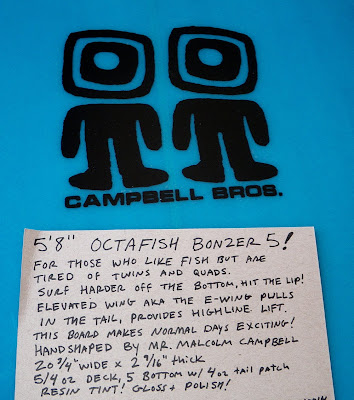 CAMPBELL BROS.
5'8" OCTAFISH BONZER 5!
FOR THOSE WHO LIKE FISH BUT ARE
TIRED OF TWINS AND QUADS.
SURF HARDER OFF THE BOTTOM, HIT THE LIP!
ELEVATED WING AKA THE E-WING PULLS
IN THE TAIL, PROVIDES HIGHLINE LIFT.
THIS BOARD MAKES NORMAL DAYS EXCITING!
HANDSHAPED BY MR. MALCOLM CAMPBELL
20 3/4" WIDE x 2 9/16" thick
5/4 oz DECK, 5 BOTTOM w/ 4oz tail patch
RESIN TINT! GLOSS + POLISH!